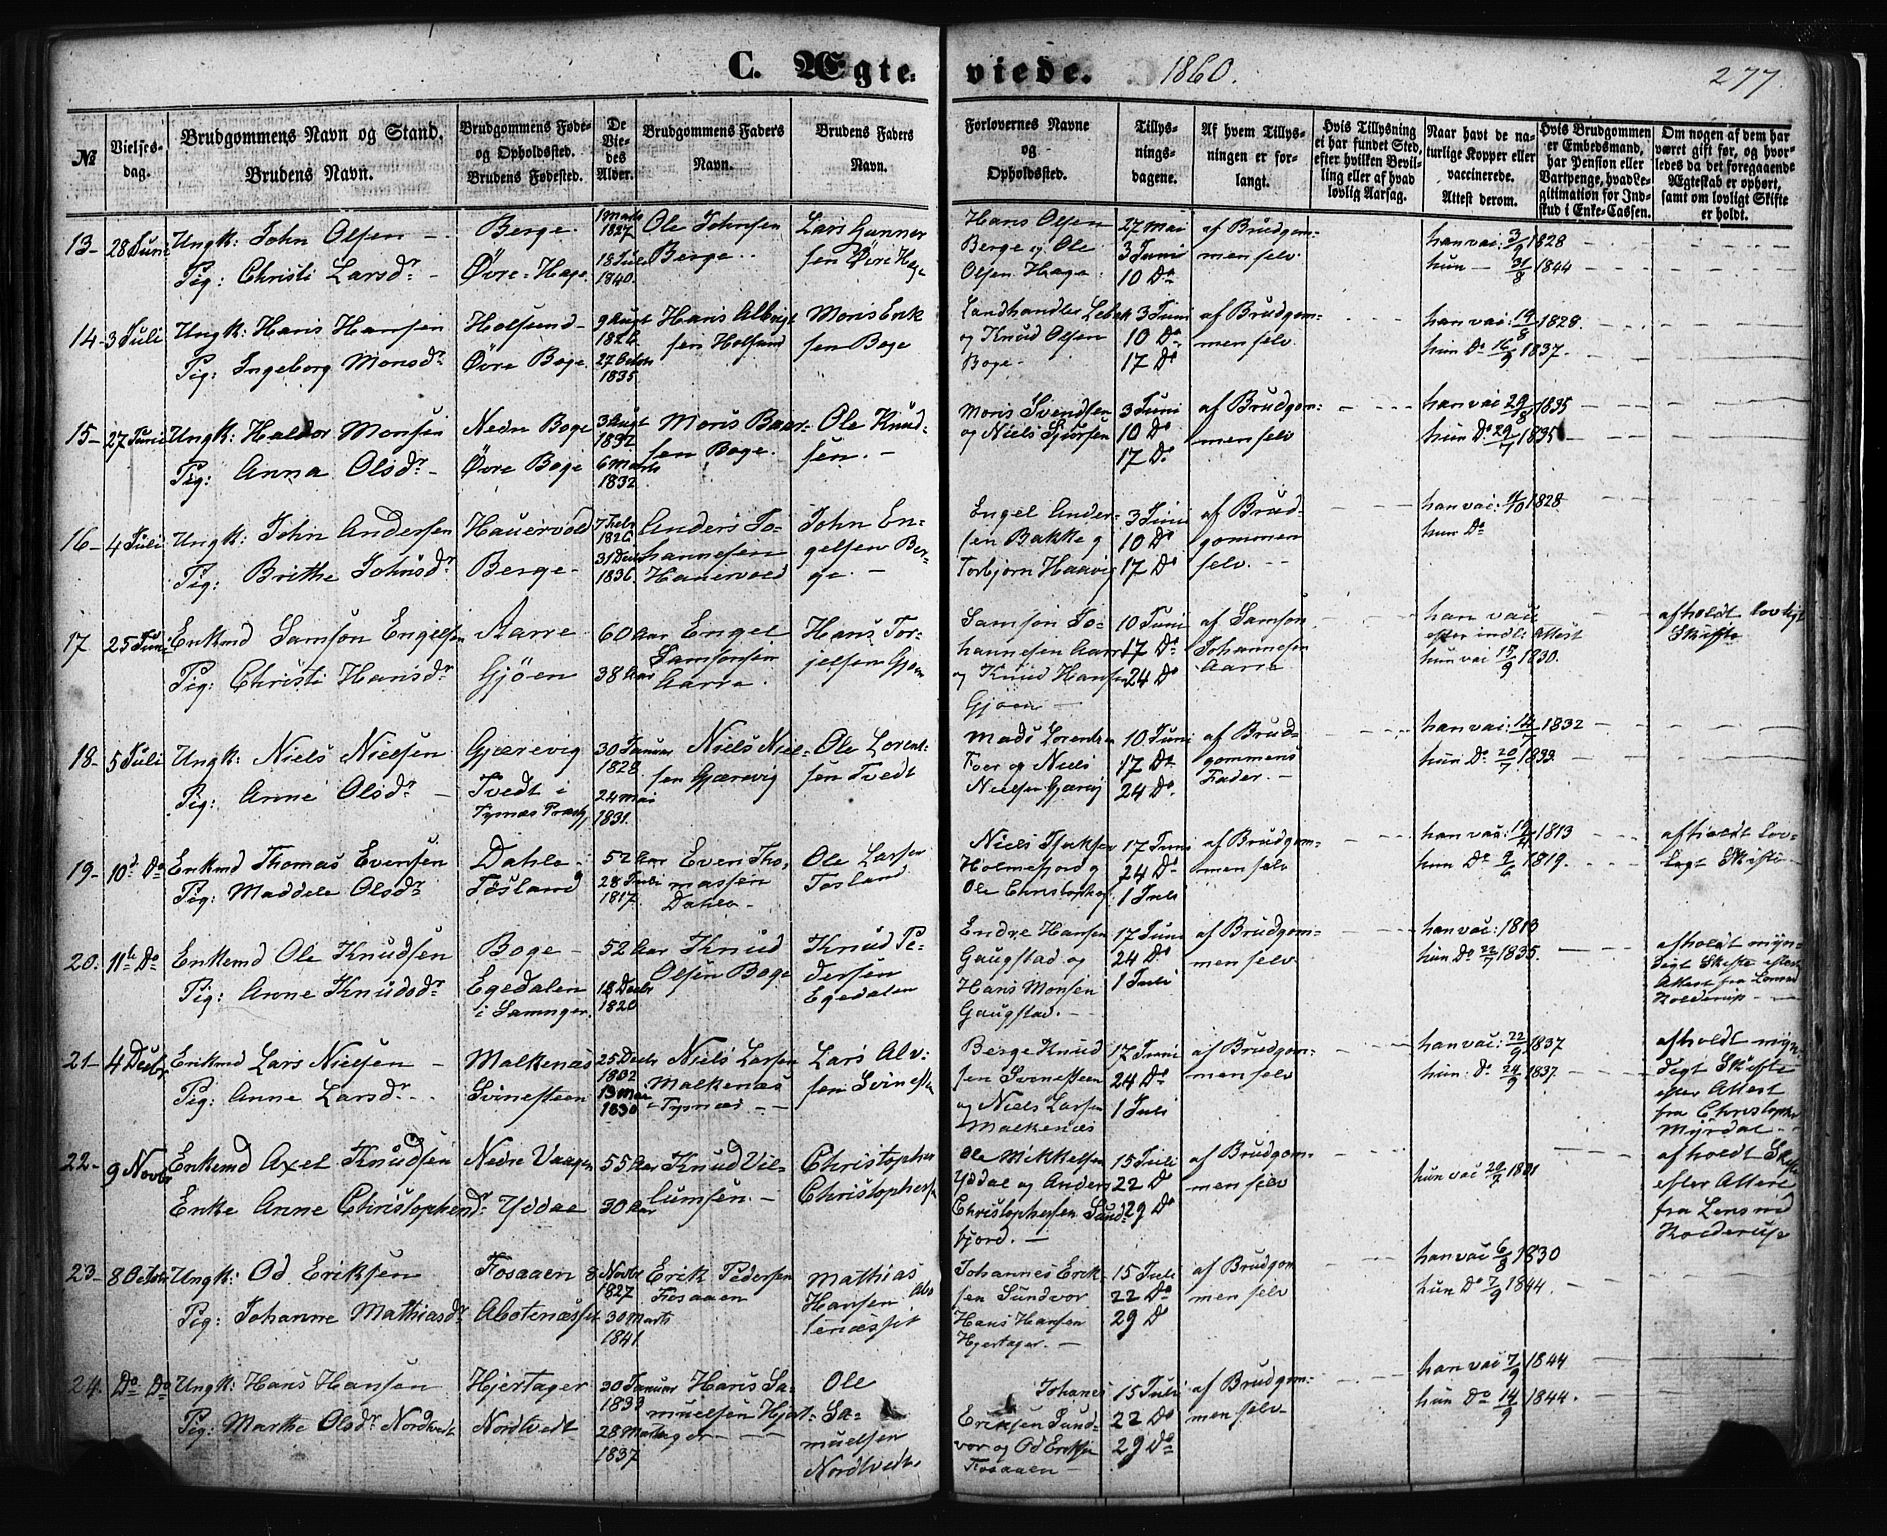 C. Ægte-
viede. 1860.
277.
№
Vielses-
dag.
Brudgommens Navn og Stand.
Brudens Navn.
Brudgommens Føde-
og Opholdssted.
Brudens Fødested.
De
Vie-
des
Alder.
Brudgommens Faders
Navn.
Brudens Faders
Navn.
Forlovernes Navne
og
Opholdssted.
Tillys-
nings-
dagene.
Af hvem Tillys-
ningen er for-
langt.
Hvis Tillysning
ei har fundet Sted,
efter hvilken Bevil-
ling eller af hvad
lovlig Aarsag.
Naar havt de na-
turlige Kopper eller
vaccinerede.
Attest derom.
Hvis Brudgommen
er Embedsmand,
har Pension eller
Vartpenge, hvad Le-
gitimation for Ind-
skud i Enke-Cassen.
Om nogen af dem har
været gift før, og hvor-
ledes da det foregaaende
Ægteskab er ophørt,
samt om lovligt Skifte
er holdt.
13- 28 Juni
Ungk: John Olsen -
Pig: Christi Larsdr -
Berge
Øvre-Hage
1 Marts
1827
18 Juli
1840.
Ole Johnsen
Berge
Lars Gunner
sen Øvre Hage
Hans Olsen
Berge og Ole
Olsen Hage
27 Mai
3 Juni
10 Do
af Brudgom-
men selv.
han vac: 3/9 1828
hun - 31/8 1844
14- 3 Juli
Ungk: Hans Hansen
Pig: Ingeborg Monsdr
Holsund-
Øvre Boge
9 Augt
1826
27 Octbr
1835
Hans Albrigt
sen Holsund
Mons Erik
sen Boge
Landhandler Lebek
og Knud Olsen
Boge
3 Juni
10 Do
17 Do
af Brudgom-
men selv.
han vac: 19/8 1828.
hun Do 16/9 1837.
15- 27 Juni
Ungk: Haldor Monsen
Pig: Anna Olsdr -
Nedre Boge
Øvre Boge
3 Augt
1832
6 Marts
1832
Mons Baar-
sen Boge.
Ole Knud-
sen. -
Mons Svendsen
og Niels Sjursen
3 Juni
10 Do
17 Do
af Brudgom-
men selv.
han vac 29/8 1835
hun Do 29/7 1835
16- 4 Juli
Ungk: John Andersen
Pig: Brithe Johnsdr
Hauervold
Berge -
7 Febr
1826
31 Decbr
1836
Anders Jo-
hannesen
Hauervold
John En-
gelsen Ber-
ge. -
Engel Ander-
sen Bakke og
Torbjørn Haavig
3 Juni
10 Do
17 Do
af Brud-
gommen
selv. -
han vac: 11/10 1828
hun Do
17 25 Juni
Enkemd Samson Engelsen
Pig: Christi Hansdr
Aarre
Gjøen
60 Aar
38 Aar
Engel
Samsonsen
Aarre.
Hans Tor-
jelsen Gjøen
Samson Jo-
hannesen Aarre
og Knud Hansen
Gjøen -
10 Juni
17 Do
24 Do
af Samson
Johannesen
Aarre
han vac
efter indl: Attest
hun vac 15/9 1830.
afholdt lovligt
Skifte
18- 5 Juli
Ungk: Niels Nielsen
Pig: Anne Olsdr -
Gjærevig
Tvedt i
Tysnæs Præstg
30 Januar
1828
24 Mai
1831.
Niels Niel-
sen Gjærevig
Ole Lorent-
sen Tvedt
Mads Lorentsen
Foer og Niels
Nielsen Gjærevig
10 Juni
17 Do
24 Do
af Brud-
gommens
Fader. -
han vac: 14/7 1832
hun Do 20/7 1833.
19- 10d Do
Enkemd Thomas Evensen
Pig: Maddele Olsdr
Dahle -
Tosland
52 Aar
28 Juli
1817.
Even Tho-
massen
Dahle -
Ole Larsen
Tosland
Niels Isaksen
Holmefjord og
Ole Christophers
17 Juni
24 Do
1 Juli
af Brudgom-
men selv
han vac: 1813
hun Do 2/6 1819.
afholdt lov-
ligt Skifte
20. 11te Do
Enkemd Ole Knudsen
Pig: Anne Knudsdr
Boge -
Egedalen
i Samnger.
52 Aar
18 Decbr
1820
Knud
Olsen Boge
Knud Pe-
dersen
Egedalen
Endre Hansen
Gaugstad og
Hans Monsen
Gaugstad. -
17 Juni
24 Do
1 Juli
af Brudgom-
men selv.
han vac: 1813
hun Do 22/7 1835.
afholdt myn-
digt Skifte efter
Attest fra Lensmd
Kolderup -
21- 4 Decbr
Enkemd Lars Nielsen -
Pig: Anne Larsdr -
Malkenæs
Svinesteen
25 Decbr
1802
19 Mai
1830
Niels Larsen
Malkenæs
i Tysnæs -
Lars Alv-
sen Svineste
Berge Knud
sen Svinesteen
og Niels Larsen
Malkenæs
17 Juni
24 Do
1 Juli
af Brudgom-
men selv
han vac: 22/9 1837
hun: Do 24/9 1837
afholdt myn
digt Skifte
efter Attest
fra Christopher
Myrdal -
22- 9 Novbr
Enkemd Axel Knudsen
Enke Anne Christophersdr
Nedre Vaage
Yddal
55 Aar
30 Aar
Knud Vil-
lumsen. -
Christopher
Christophersen
Ole Mikkelsen
Yddal og Anders
Christophersen Sund-
fjord. -
15 Juli
22 Do
29 Do
af Brudgom-
men selv
hun vac 20/7 1831
afholdt Skifte
efter Attest
fra Lensmd
Kolderup
23- 8 October
Ungk: Od Eriksen
Pig: Johanne Mathiasdr
Fosaaen
Abotenæsset
8 Novbr
1827
30 Marts
1841
Erik Pedersen
Fosaaen
Mathias
Hansen Abo
tenæsset
Johannes Erik
sen Sundvor
Hans Hansen
Hjertager. -
15 Juli
22 Do
29 Do
af Brudgom
men selv
han vac 6/8 1830
hun Do 7/9 1844.
24. Do Do
Ungk: Hans Hansen
Pig: Marthe Olsdr Nordtvedt
Hjertager
Nordtvedt
30 Januar
1833
28 Marts
1837
Hans Sa-
muelsen Hjert-
ager -
Ole
Sa-
muelsen
Nordtvedt
Johanes
Eriksen Sund-
vor og Od Eriksen
Fosaaen -
15 Juli
22 Do
29 Do
af Brudgom-
men selv-
han vac 7/9 1844
hun Do 14/9 1844.